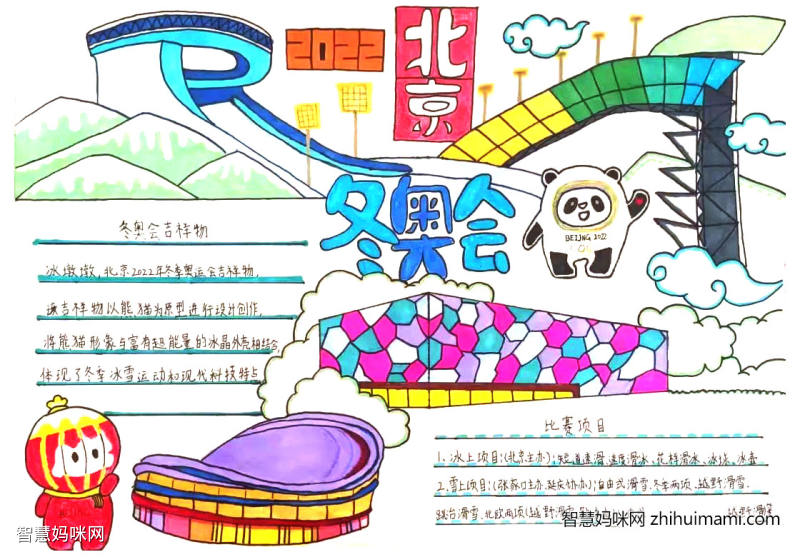 2022
北京
冬奥会
BEIJING 2022
冬奥会吉祥物
冰墩墩,北京2022年冬季奥运会吉祥物,
该吉祥物以熊猫为原型进行设计创作,
将熊猫形象与富有超能量的冰晶外壳相结合,
体现了冬季冰雪运动和现代科技特点
比赛项目
1、冰上项目:(北京主办):短道速滑、速度滑冰、花样滑冰、冰球、冰壶
2、雪上项目:(张家口主办,延庆协办):自由式滑雪、冬季两项、越野滑雪、
跳台滑雪、北欧两项(越野滑雪
智慧妈咪网
智慧妈咪网 zhihuimami.com